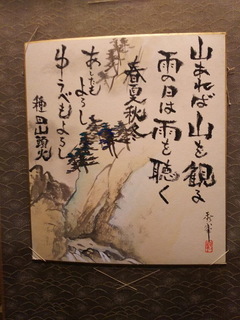 山あれば山を観る
雨の日は雨を聴く
春夏秋冬
あしたもよろし
ゆうべもよろし
種田山頭火